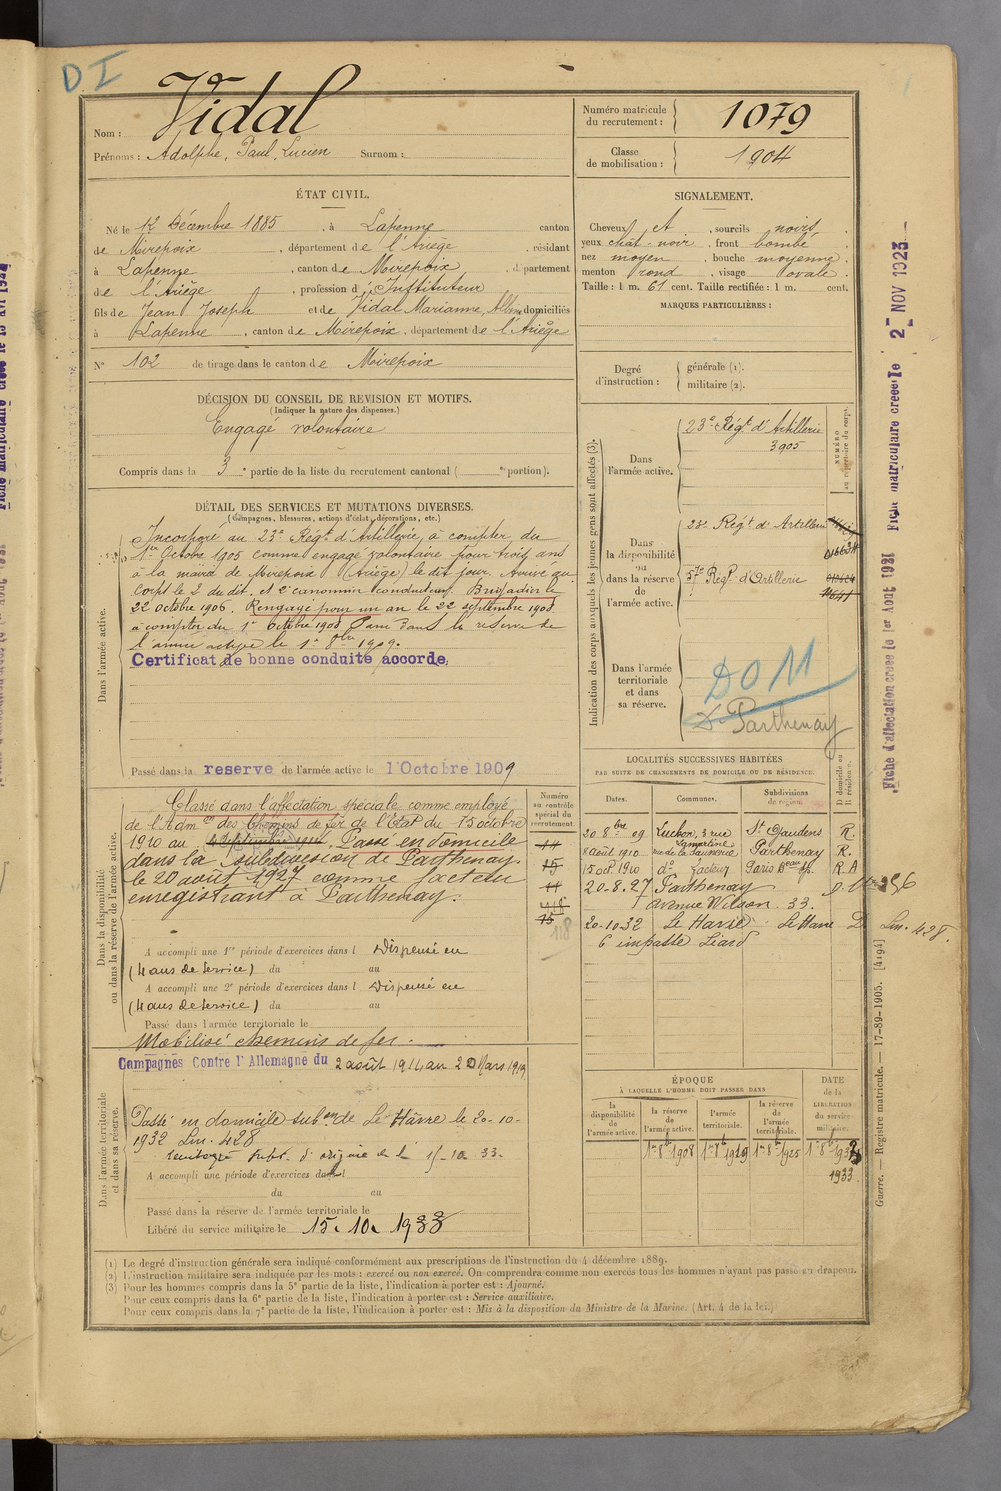 D I
Nom : Vidal
Prénoms : Adolphe, Paul, Lucien Surnom :
Numéro matricule du recrutement : 1079
Classe de mobilisation : 1904
ÉTAT CIVIL.
Né le 12 Décembre 1885, à Lapenne canton
de Mirepoix, département de l'Ariège, résidant
à Lapenne, canton de Mirepoix, département
de l'Ariège, profession d'Instituteur
fils de Jean Joseph et de Vidal Marianne, domiciliés
à Lapenne, canton de Mirepoix, département de l'Ariège
N° 102 de tirage dans le canton de Mirepoix
SIGNALEMENT.
Cheveux et, sourcils noirs.
yeux chat-noir, front bombé.
nez moyen, bouche moyenne.
menton rond, visage ovale.
Taille : 1 m. 61 cent. Taille rectifiée : 1 m. cent.
MARQUES PARTICULIÈRES :
Degré d'instruction : générale (1).
militaire (2).
DÉCISION DU CONSEIL DE REVISION ET MOTIFS.
(Indiquer la nature des dispenses.)
Engagé volontaire
Compris dans la 3e partie de la liste du recrutement cantonal ( e portion).
DÉTAIL DES SERVICES ET MUTATIONS DIVERSES.
(Campagnes, blessures, actions d'éclat, décorations, etc.)
Dans l'armée active.
Incorporé au 23e Régt d'Artillerie, à compter du
1er Octobre 1905 comme engagé volontaire pour trois ans
à la mairie de Mirepoix (Ariège) le dit jour. Arrivé au
corps le 2 du dit. et 2e canonnier conducteur. Brigadier le
22 octobre 1906. Rengagé pour un an le 22 septembre 1908
à compter du 1er Octobre 1908. Passé dans la réserve de
l'armée active le 1er 8bre 1909.
Certificat de bonne conduite accordé,
Passé dans la réserve de l'armée active le 1 Octobre 1909
Indication des corps auxquels les jeunes gens sont affectés (3).
NUMÉRO au répertoire du corps.
Dans l'armée active.
23e Régt d'Artillerie
3905
Dans la disponibilité ou dans la réserve de l'armée active.
23e Régt d'Artillerie
016634
57e Régt d'Artillerie
Dans l'armée territoriale et dans sa réserve.
DO M
Parthenay
Dans la disponibilité ou dans la réserve de l'armée active.
Classé dans l'affectation spéciale comme employé
de l'Admon des Chemins de fer de l'Etat du 15 octobre
1910 au 4 Septembre 1914. Passé en domicile
dans la subdivision de Parthenay
le 20 août 1927 comme facteur
enregistrant à Parthenay.
A accompli une 1re période d'exercices dans l Dispensé en
(4 ans de service) du au
A accompli une 2e période d'exercices dans l Dispensé en
(4 ans de service) du au
Passé dans l'armée territoriale le
Mobilisé chemins de fer.
Numéro au contrôle spécial du recrutement.
LOCALITÉS SUCCESSIVES HABITÉES
PAR SUITE DE CHANGEMENTS DE DOMICILE OU DE RÉSIDENCE.
Dates. Communes. Subdivisions de région. D domicile ou R résidence.
20 8bre 09 Luchon, 3 rue Lamartine St Gaudens R.
8 août 1910 rue de la Saunerie Parthenay R.
15 oct. 1910 do facteur Paris R A
20-8-27 Parthenay
avenue Wilson 33.
20-10-32 Le Havre Le Havre D Lm. 428.
6 impasse Liard
Dans l'armée territoriale et dans sa réserve.
Campagnes Contre l'Allemagne du 2 août 1914 au 20 Mars 1919
Passé en domicile subon de Le Hâvre le 20-10-
1932 Lm. 428
A accompli une période d'exercices dans l
du au
Passé dans la réserve de l'armée territoriale le
Libéré du service militaire le 15. 10. 1933
ÉPOQUE
À LAQUELLE L'HOMME DOIT PASSER DANS
la disponibilité de l'armée active. la réserve de l'armée active. l'armée territoriale. la réserve de l'armée territoriale.
DATE de la LIBÉRATION du service militaire.
1er 8b 1908 1er 8b 1919 1er 8b 1925 1er 8b 1933
1933
(1) Le degré d'instruction générale sera indiqué conformément aux prescriptions de l'instruction du 4 décembre 1889.
(2) L'instruction militaire sera indiquée par les mots : exercé ou non exercé. On comprendra comme non exercés tous les hommes n'ayant pas passé au drapeau.
(3) Pour les hommes compris dans la 5e partie de la liste, l'indication à porter est : Ajourné.
Pour ceux compris dans la 6e partie de la liste, l'indication à porter est : Service auxiliaire.
Pour ceux compris dans la 7e partie de la liste, l'indication à porter est : Mis à la disposition du Ministre de la Marine. (Art. 4 de la loi.)
Fiche matriculaire créée le 2 NOV 1923
Fiche d'affectation créée le 1er Août 1931
Guerre. — Registre matricule. — 17-89-1905. [4194]